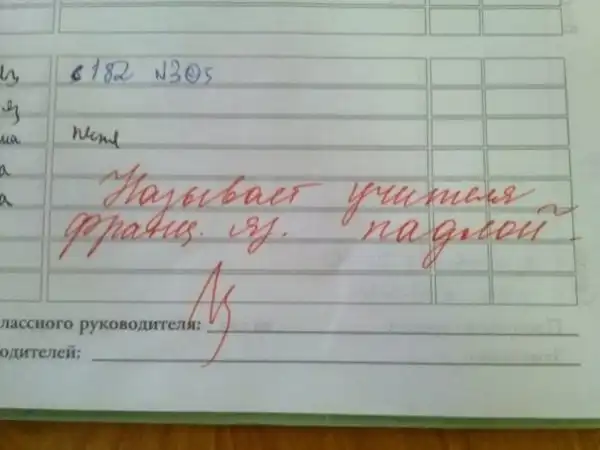 с182 №305
яз
песня
Называет учителя
франц. яз. падлой.
лассного руководителя:
одителей: